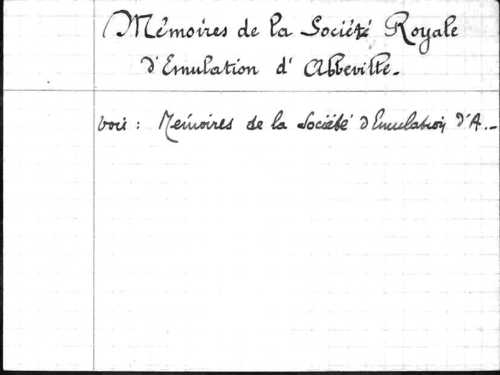 Mémoires de la Société Royale
d'Emulation d'Abbeville.
voir : Mémoires de la Société d'Emulation d'A..